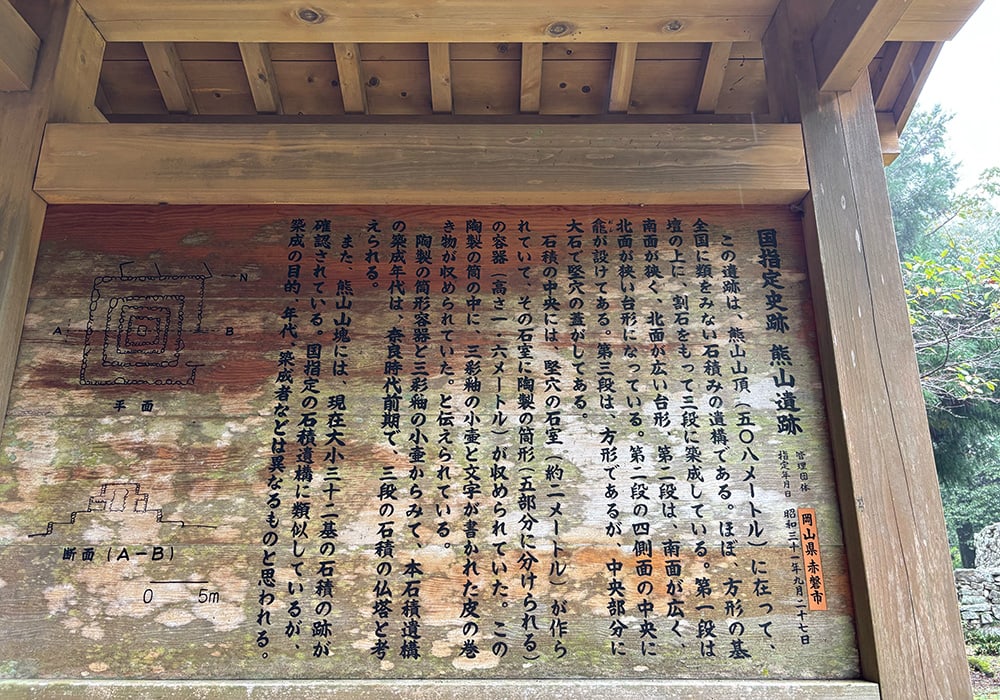 国指定史跡 熊山遺跡
管理団体 岡山県赤磐市
指定年月日 昭和三十一年九月二十七日
この遺跡は、熊山山頂（五〇八メートル）に在って、
全国に類をみない石積みの遺構である。ほぼ、方形の基
壇の上に、割石をもって三段に築成している。第一段は
南面が狭く、北面が広い台形、第二段は、南面が広く、
北面が狭い台形になっている。第二段の四側面の中央に
龕が設けてある。第三段は、方形であるが、中央部分に
大石で竪穴の蓋がしてある。
石積の中央には、竪穴の石室（約二メートル）が作ら
れていて、その石室に陶製の筒形（五部分に分けられる）
の容器（高さ一・六メートル）が収められていた。この
陶製の筒の中に、三彩釉の小壷と文字が書かれた皮の巻
き物が収められていた。と伝えられている。
陶製の筒形容器と三彩釉の小壷からみて、本石積遺構
の築成年代は、奈良時代前期で、三段の石積の仏塔と考
えられる。
また、熊山山塊には、現在大小三十二基の石積の跡が
確認されている。国指定の石積遺構に類似しているが、
築成の目的、年代、築成者などは異なるものと思われる。
N
A B
平面
断面（A−B）
0 5m